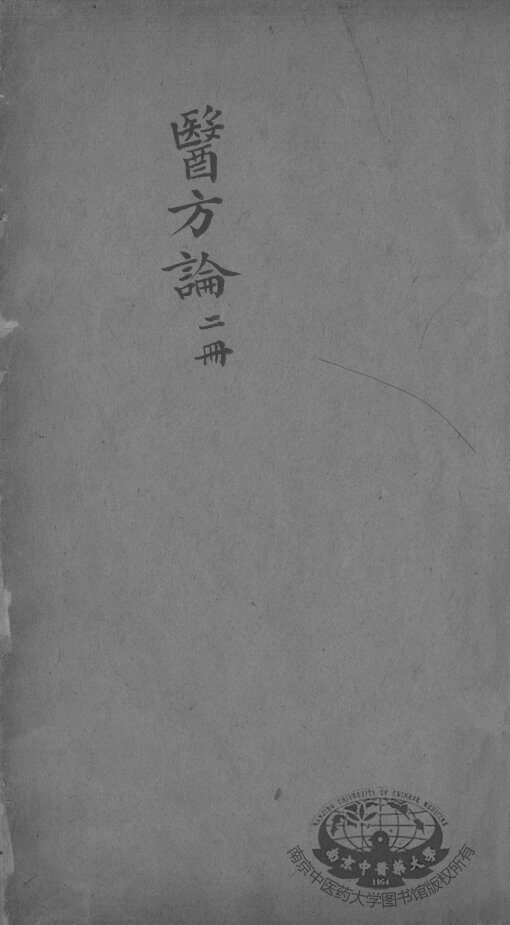 醫方論
二冊
NANJING UNIVERSITY OF CHINESE MEDICINE
南京中醫藥大學
1954
南京中医药大学图书馆版权所有